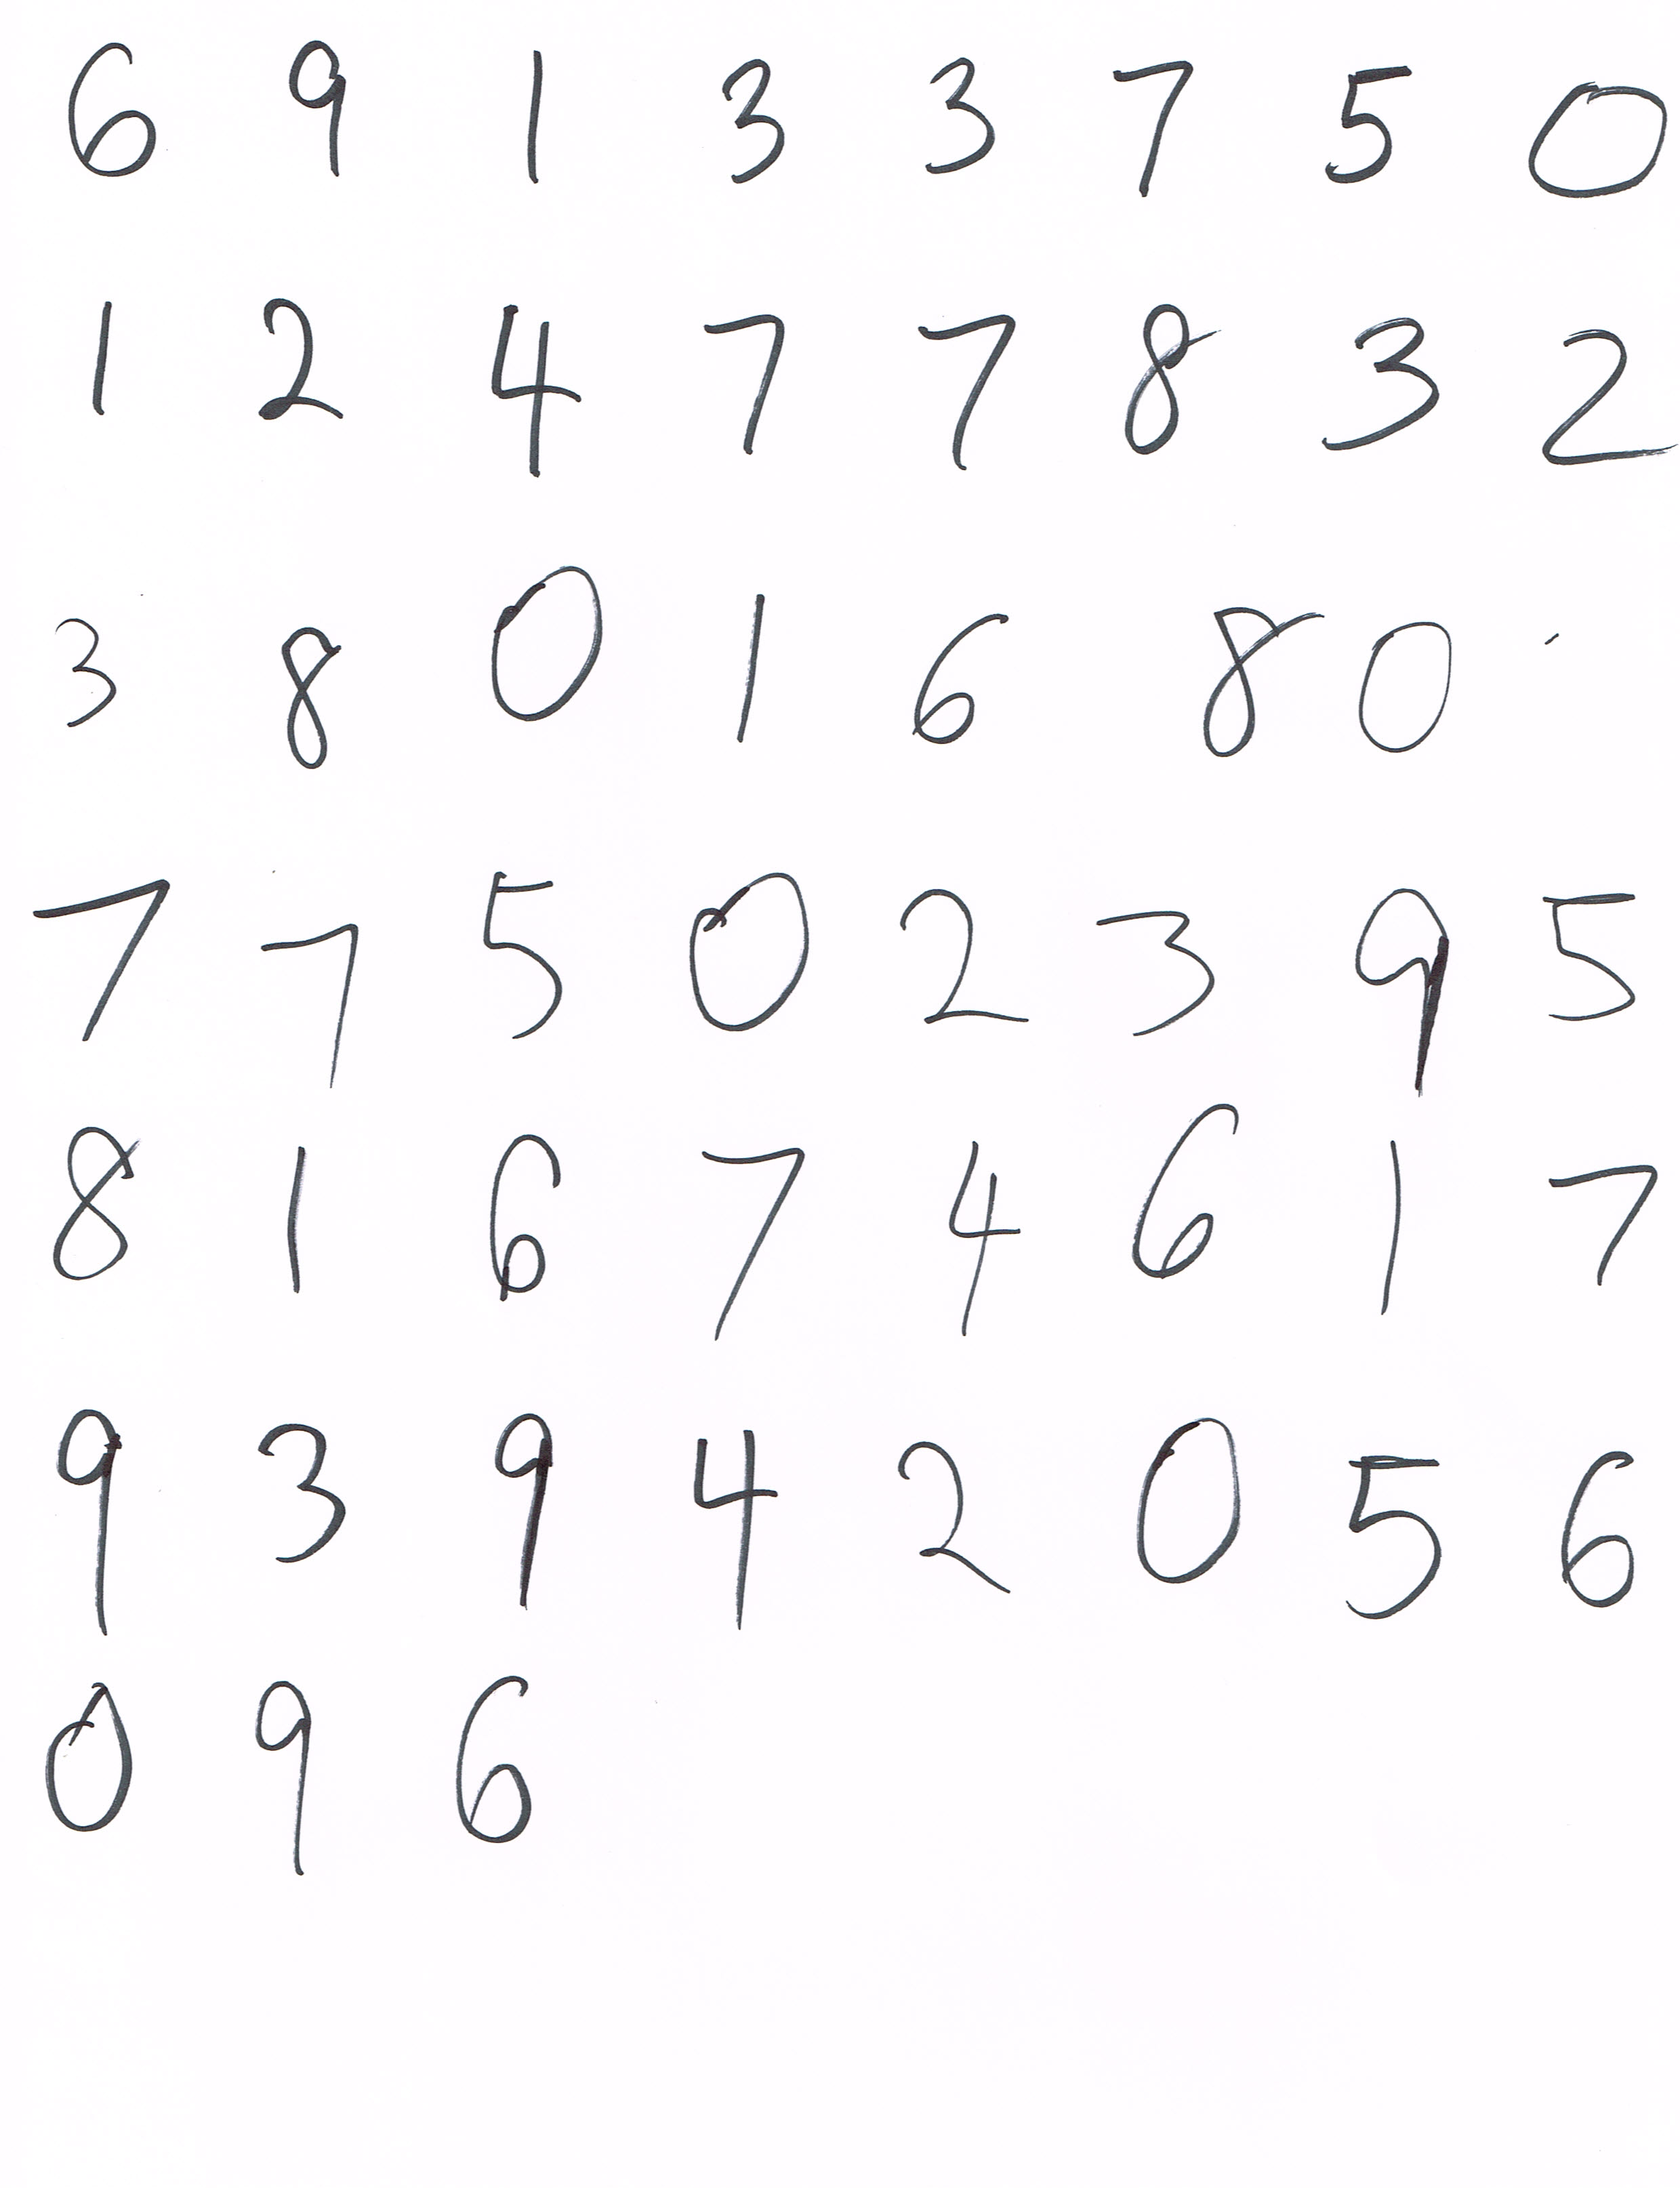 6 9 1 3 3 7 5 0
1 2 4 7 7 8 3 2
3 8 0 1 6 8 0
7 7 5 0 2 3 9 5
8 1 6 7 4 6 1 7
9 3 9 4 2 0 5 6
0 9 6